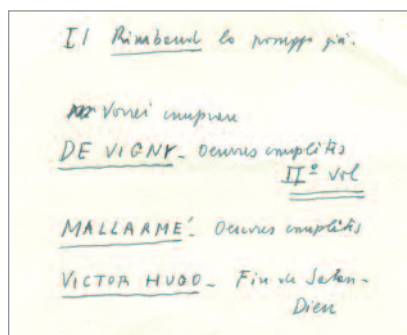 Il Rimbaud lo
Vorrei comprare
DE VIGNY - Oeuvres complètes
IIº vol
MALLARMÉ - Oeuvres complètes
VICTOR HUGO - Fin de Satan -
Dieu